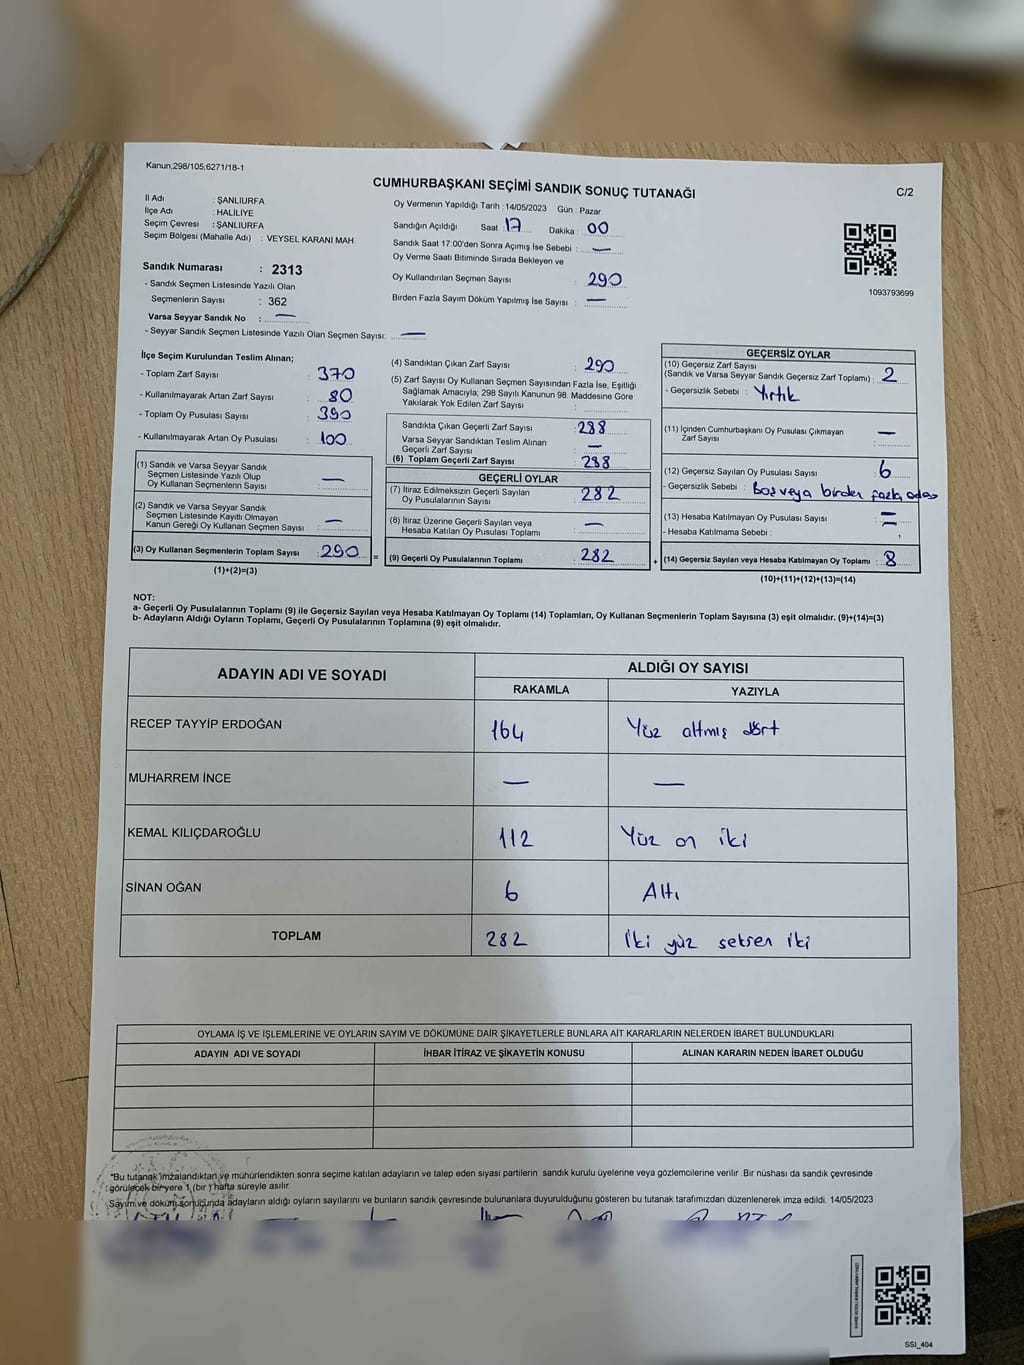 Kanun;298/105,6271/18-1
CUMHURBAŞKANI SEÇİMİ SANDIK SONUÇ TUTANAĞI
C/2
İl Adı : ŞANLIURFA
İlçe Adı : HALİLİYE
Seçim Çevresi : ŞANLIURFA
Seçim Bölgesi (Mahalle Adı) : VEYSEL KARANİ MAH.
Sandık Numarası : 2313
- Sandık Seçmen Listesinde Yazılı Olan
Seçmenlerin Sayısı : 362
Varsa Seyyar Sandık No : —
- Seyyar Sandık Seçmen Listesinde Yazılı Olan Seçmen Sayısı: —
Oy Vermenin Yapıldığı Tarih : 14/05/2023 Gün : Pazar
Sandığın Açıldığı Saat : 17 Dakika : 00
Sandık Saat 17:00'den Sonra Açımış İse Sebebi : —
Oy Verme Saati Bitiminde Sırada Bekleyen ve
Oy Kullandırılan Seçmen Sayısı : 290
Birden Fazla Sayım Döküm Yapılmış İse Sayısı : —
1093793699
İlçe Seçim Kurulundan Teslim Alınan;
- Toplam Zarf Sayısı : 370
- Kullanılmayarak Artan Zarf Sayısı : 80
- Toplam Oy Pusulası Sayısı : 390
- Kullanılmayarak Artan Oy Pusulası : 100
(1) Sandık ve Varsa Seyyar Sandık
Seçmen Listesinde Yazılı Olup
Oy Kullanan Seçmenlerin Sayısı : —
(2) Sandık ve Varsa Seyyar Sandık
Seçmen Listesinde Kayıtlı Olmayan
Kanun Gereği Oy Kullanan Seçmen Sayısı : —
(3) Oy Kullanan Seçmenlerin Toplam Sayısı : 290
(1)+(2)=(3)
(4) Sandıktan Çıkan Zarf Sayısı : 290
(5) Zarf Sayısı Oy Kullanan Seçmen Sayısından Fazla İse, Eşitliği
Sağlamak Amacıyla, 298 Sayılı Kanunun 98. Maddesine Göre
Yakılarak Yok Edilen Zarf Sayısı :
Sandıkta Çıkan Geçerli Zarf Sayısı : 288
Varsa Seyyar Sandıktan Teslim Alınan
Geçerli Zarf Sayısı : —
(6) Toplam Geçerli Zarf Sayısı : 288
GEÇERLİ OYLAR
(7) İtiraz Edilmeksizin Geçerli Sayılan
Oy Pusulalarının Sayısı : 282
(8) İtiraz Üzerine Geçerli Sayılan veya
Hesaba Katılan Oy Pusulaları Toplamı : —
= (9) Geçerli Oy Pusulalarının Toplamı : 282
GEÇERSİZ OYLAR
(10) Geçersiz Zarf Sayısı
(Sandık ve Varsa Seyyar Sandık Geçersiz Zarf Toplamı) : 2
- Geçersizlik Sebebi : Yırtık
(11) İçinden Cumhurbaşkanı Oy Pusulası Çıkmayan
Zarf Sayısı : —
(12) Geçersiz Sayılan Oy Pusulası Sayısı : 6
- Geçersizlik Sebebi : Boş veya birden fazla
(13) Hesaba Katılmayan Oy Pusulası Sayısı : —
- Hesaba Katılmama Sebebi : —
+ (14) Geçersiz Sayılan veya Hesaba Katılmayan Oy Toplamı : 8
(10)+(11)+(12)+(13)=(14)
NOT:
a- Geçerli Oy Pusulalarının Toplamı (9) ile Geçersiz Sayılan veya Hesaba Katılmayan Oy Toplamı (14) Toplamları, Oy Kullanan Seçmenlerin Toplam Sayısına (3) eşit olmalıdır. (9)+(14)=(3)
b- Adayların Aldığı Oyların Toplamı, Geçerli Oy Pusulalarının Toplamına (9) eşit olmalıdır.
ADAYIN ADI VE SOYADI
ALDIĞI OY SAYISI
RAKAMLA YAZIYLA
RECEP TAYYİP ERDOĞAN 164 Yüz altmış dört
MUHARREM İNCE — —
KEMAL KILIÇDAROĞLU 112 Yüz on iki
SİNAN OĞAN 6 Altı
TOPLAM 282 İki yüz seksen iki
OYLAMA İŞ VE İŞLEMLERİNE VE OYLARIN SAYIM VE DÖKÜMÜNE DAİR ŞİKAYETLERLE BUNLARA AİT KARARLARIN NELERDEN İBARET BULUNDUKLARI
ADAYIN ADI VE SOYADI İHBAR İTİRAZ VE ŞİKAYETİN KONUSU ALINAN KARARIN NEDEN İBARET OLDUĞU
*Bu tutanak imzalandıktan ve mühürlendikten sonra seçime katılan adayların ve talep eden siyasi partilerin sandık kurulu üyelerine veya gözlemcilerine verilir. Bir nüshası da sandık çevresinde
görülecek bir yere 1 (bir ) hafta süreyle asılır.
Sayım ve döküm sonucunda adayların aldığı oyların sayılarını ve bunların sandık çevresinde bulunanlara duyurulduğunu gösteren bu tutanak tarafımızdan düzenlenerek imza edildi. 14/05/2023
SSİ_404